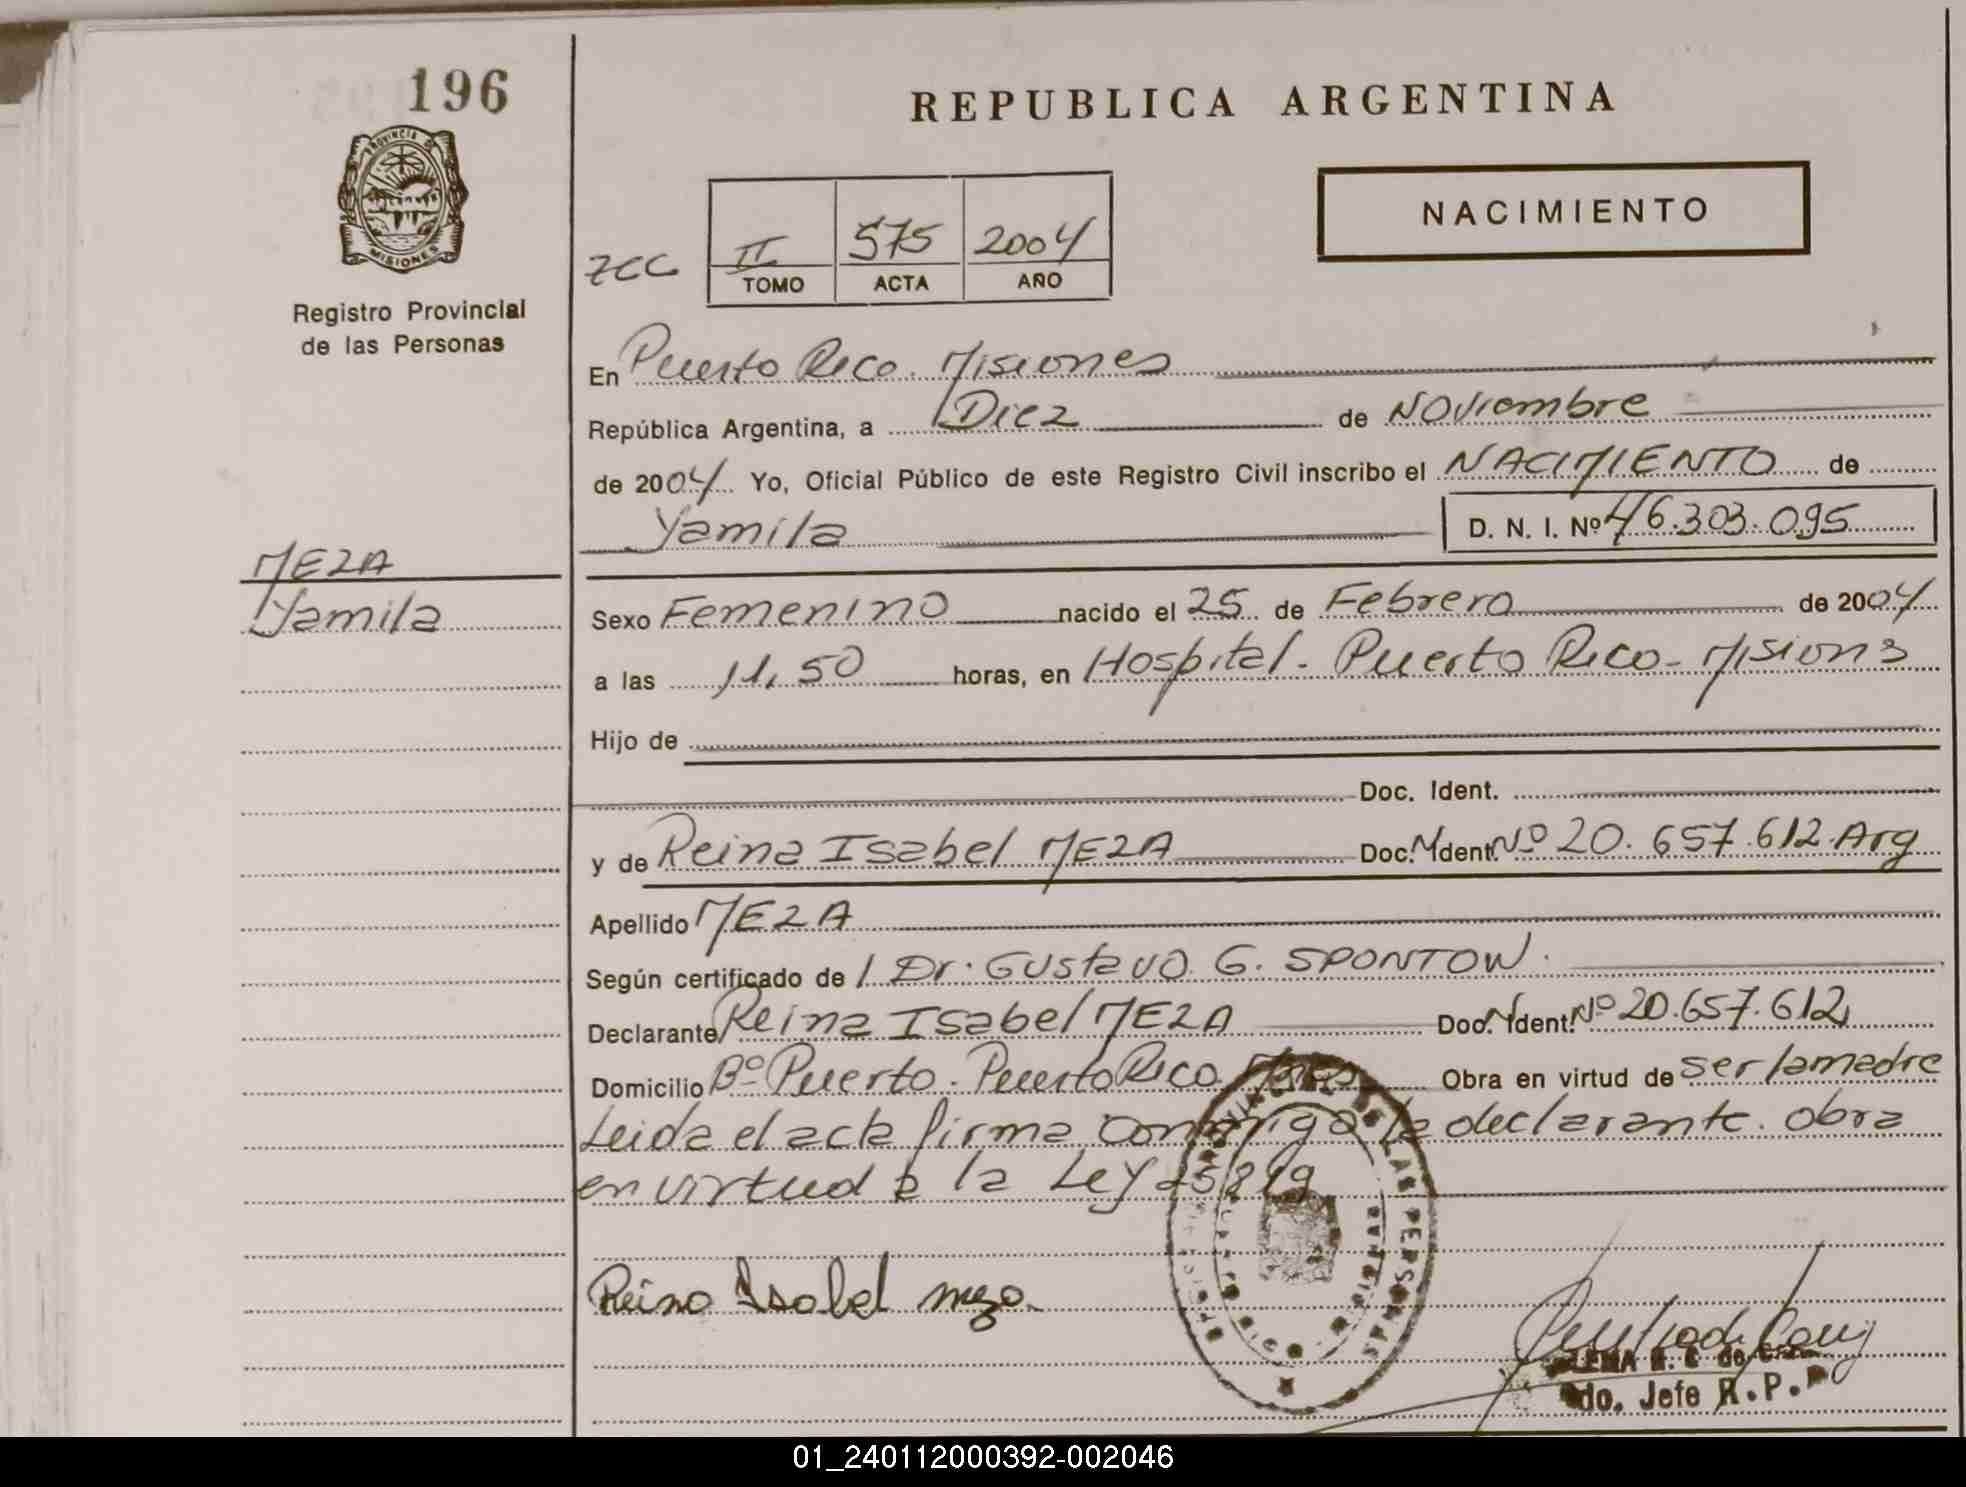 196
PROVINCIA DE
MISIONES
Registro Provincial
de las Personas
REPUBLICA ARGENTINA
NACIMIENTO
ZCC
II 575 2004
TOMO ACTA AÑO
En Puerto Rico. Misiones
República Argentina, a Diez de Noviembre
de 2004 Yo, Oficial Público de este Registro Civil inscribo el NACIMIENTO de
Yamila D. N. I. Nº 46.303.095
MEZA
Yamila
Sexo Femenino nacido el 25 de Febrero de 2004
a las 11,50 horas, en Hospital. Puerto Rico - Misions
Hijo de
Doc. Ident.
y de Reina Isabel MEZA Doc. Ident. Nº 20.657.612. Arg
Apellido MEZA
Según certificado de Dr. Gustavo G. SPONTON.
Declarante Reina Isabel MEZA Doc. Ident. Nº 20.657.612
Domicilio Bº Puerto. Puerto Rico Obra en virtud de ser la madre
Leida el acta firma conmigo la declarante. obra
en virtud a la Ley 25819
DE LAS PERSONAS
Reina Isabel meza.
do. Jefe R.P.P
01_240112000392-002046